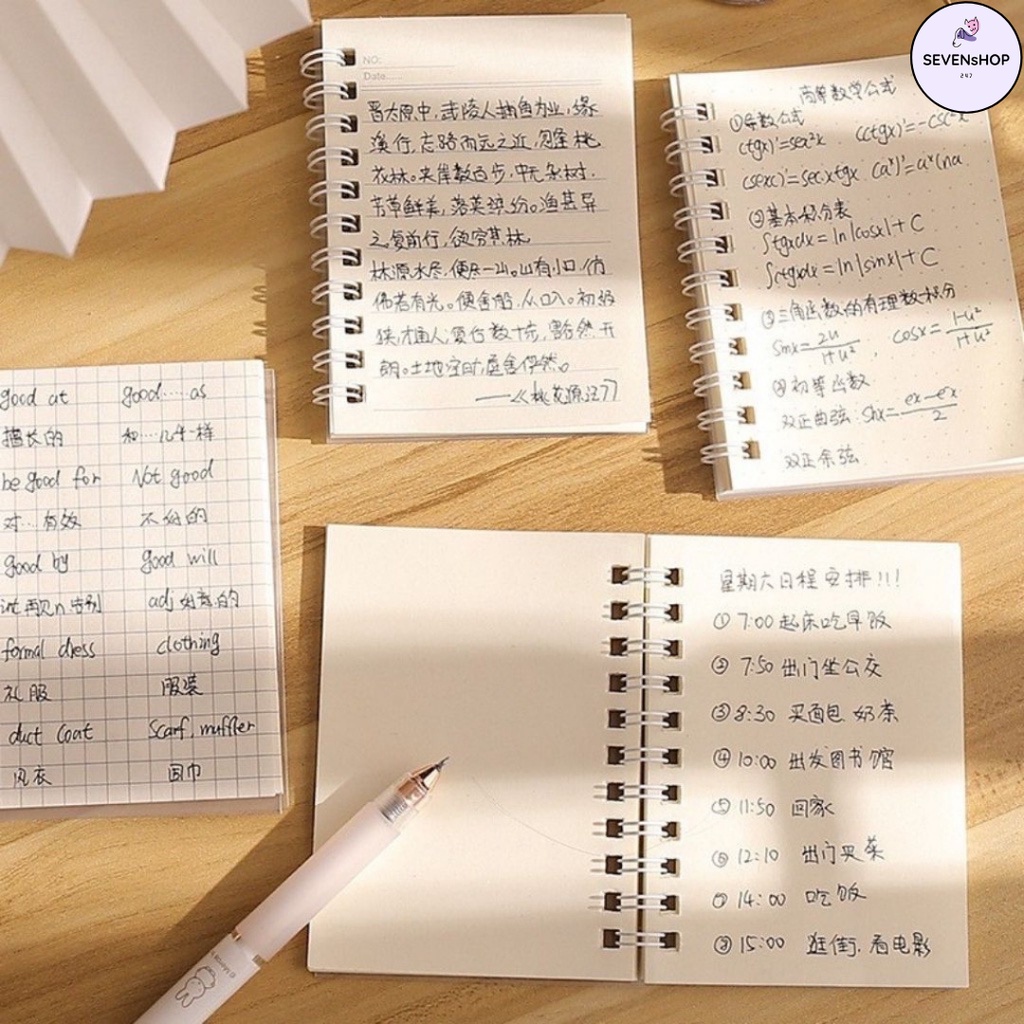 SEVENsHOP
247
NO:
Date:
晋太原中,武陵人捕鱼为业,缘
溪行,忘路而远之近,忽逢桃
花林。夹岸数百步,中无杂树.
芳草鲜美,落英缤纷。渔甚异
之复前行,欲穷其林
林源水尽,便尽一山。山有小口,仿
佛若有光。便舍船,从口入。初极
狭,才通人,复行数十步,豁然开
朗。土地空旷,屋舍俨然。
——《桃花源记》
高等数学公式
①导数公式
(tgx)'=sec²x (ctgx)'=-csc²x
(secx)'=secxtgx (aˣ)'=aˣlna
②基本积分表
∫tgxdx=ln|cosx|+C
∫ctgxdx=ln|sinx|+C
③三角函数的有理数积分
sinx=2u/1+u², cosx=1-u²/1+u²
④初等函数
双正曲弦:shx=ex-ex/2
双正余弦
good at good.....as
擅长的 和...几乎一样
be good for Not good
对...有效 不好的
good by good will
int.再见n.告别 adj.好意的
formal dress clothing
礼服 服装
duct coat Scarf, muffler
风衣 围巾
星期六日程安排!!!
① 7:00 起床吃早饭
② 7:50 出门坐公交
③ 8:30 买面包 奶茶
④ 10:00 出发图书馆
⑤ 11:50 回家
⑥ 12:10 出门买菜
⑦ 14:00 吃饭
⑧ 15:00 逛街.看电影